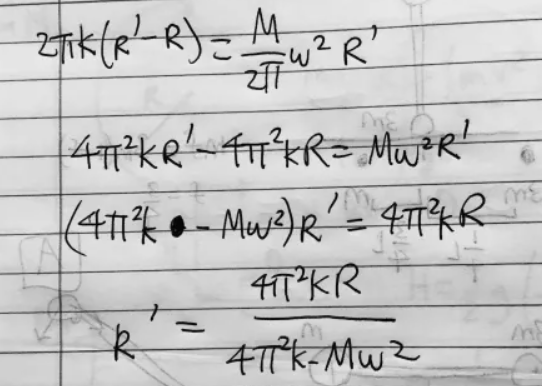 2πk(R'-R) = M/2π ω² R'
4π²kR' - 4π²kR = Mω²R'
(4π²k - Mω²)R' = 4π²kR
R' = 4π²kR / 4π²k-Mω²